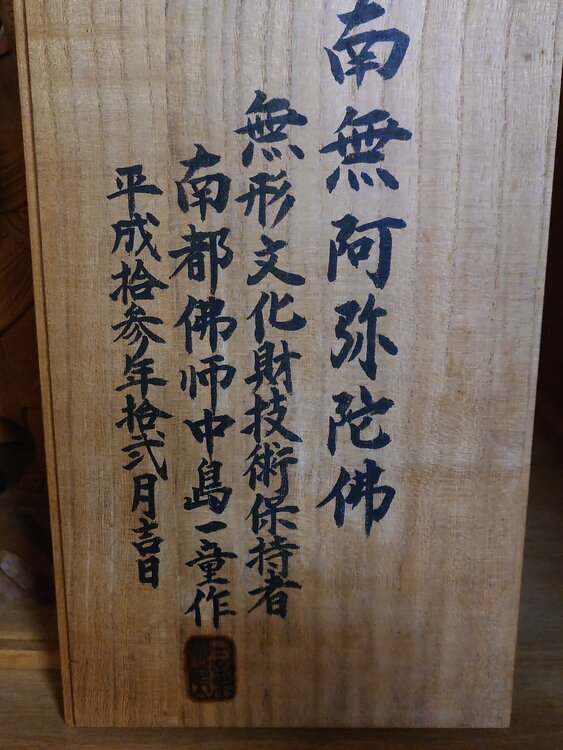 南無阿弥陀佛
無形文化財技術保持者
南都佛师中島一童作
平成拾参年拾弐月吉日